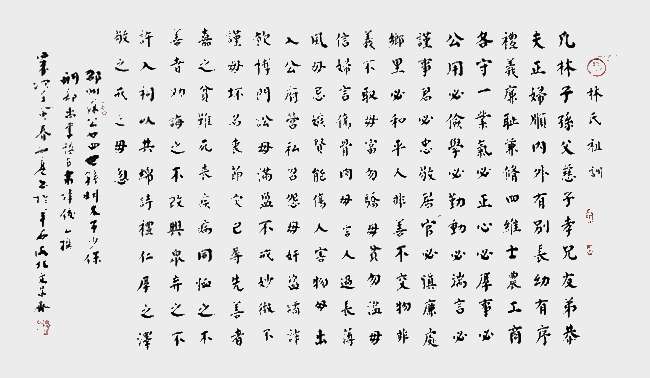 林氏祖訓
凡林子孫父慈子孝兄友弟恭
夫正婦順內外有別長幼有序
禮義廉恥兼修四維士農工商
各守一業氣必正心必厚事必
公用必儉學必勤動必端言必
謹事君必忠敬居官必慎廉處
鄉里必和平人非善不交物非
義不取毋富勿驕毋貧勿濫毋
信婦言傷骨肉毋言人過長薄
風毋忌嫉賢能傷人害物毋出
入公府營私召怨毋奸盜譎詐
飲博鬥訟毋滿盈不戒妙微不
謹毋壞名喪節灾己辱先善者
嘉之貧難死喪疾病同恤之不
善者勸誨之不改與眾弃之不
許入祠以共綿詩禮仁厚之澤
敬之戒之毋忽
邵州公廿四世少保
刑部尚書